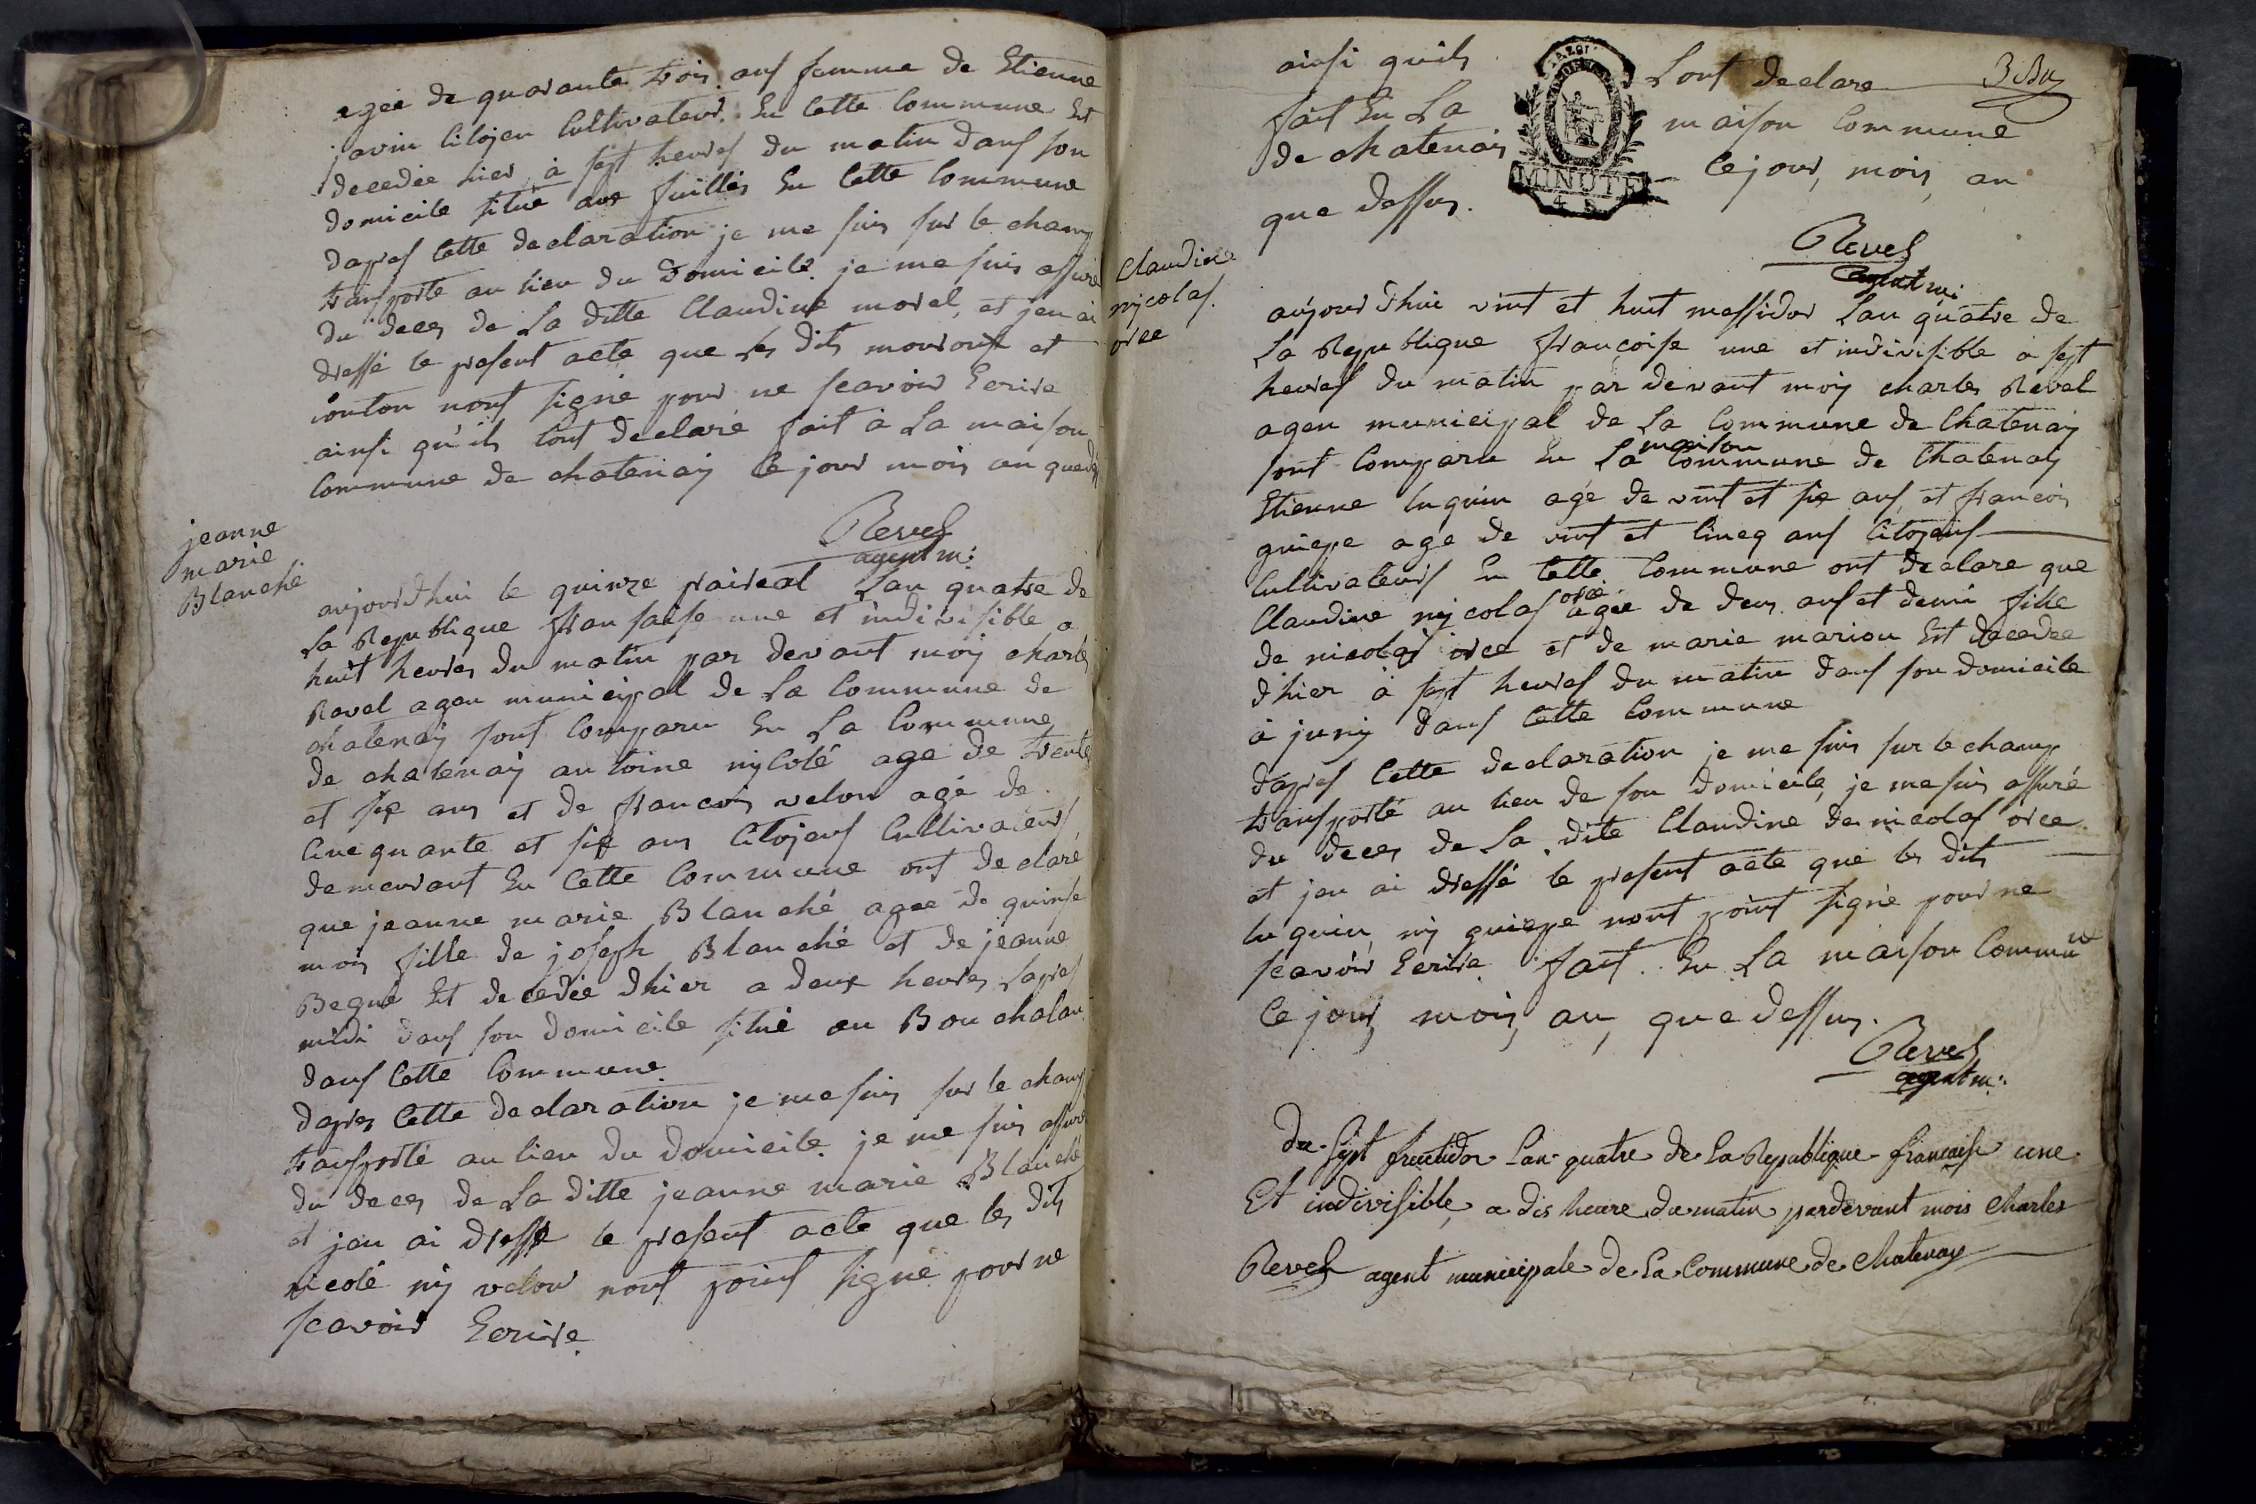 agée de quarante trois ans femme de Etienne
javin citojen Cultivateur En Cette Commune Est
decedée hier à sept heures du matin dans son
domicile situé aux fuilles En Cette Commune
dapres Cette declaration je me suis sur le champ
transporté au lieu du domicile je me suis assuré
du deces de La ditte Claudine morel, et jen ai
dressé le present acte que les dits
nont signé pour ne scavoir Ecrire
ainsi qu'ils lont declaré fait à La maison
Commune de chatenaÿ Ce jour mois an que
Revel
agent m:
jeanne
marie
Blanché
aujourdhui le quinze praireal Lan quatre de
La Republique fransaise une et indivisible a
huit heures du matin par devant moÿ charles
Revel agen municipal de La Commune de
chatenaÿ sont Comparu En La Commune
de chatenaÿ antoine nÿColé age de trente
et six ans et de francois velon agé de
Cinequante et six ans Citojens Cultivateurs
demeurant En Cette Commune ont declaré
que jeanne marie Blanché agee de quinse
mois fille de joseph Blanché et de jeanne
Begue Et decedée dhier a deux heures lapres
midi dans son domicile situé au Bouchalan
dans Cette Commune
dapres Cette declaration je me suis sur le champ
transporté au lieu du domicile je me suis assuré
du deces de La ditte jeanne marie Blanché
et jen ai dressé le present acte que les dits
nicolé nÿ velon nont point signé pour ne
scavoir Ecrire
ainsi quils Lont declare 3
fait En La maison Commune
de chatenaÿ Ce jour, mois, an
que dessus.
MINUTE
Revel
agent m:
Claudine
nÿcolas
orce
aujourdhui vint et huit messidor Lan quatre de
La Republique francoise une et indivisible a sept
heures du matin par devant moÿ charles Revel
agen municipal de La Commune de Chatenaÿ
sont Comparu En La maison Commune de Chatenaÿ
Etienne luquin agé de vint et six ans, et francois
guiepe age de vint et Cineq ans Citojens
Cultivateurs En Cette Commune ont declare que
Claudine nÿcolas orce agee de deux ans et demi fille
de nicolas orce et de marie marion Est decedee
dhier à sept heures du matin dans son domicile
à junÿ dans Cette Commune
dapres Cette declaration je me suis sur le champ
transporté au lieu de son domicile, je me suis assuré
du deces de La dite Claudine de nicolas orce
et jen ai dressé le present acte que les dits
luquin nÿ guiepe nont point signé pour ne
scavoir Ecrire fait En La maison Commune
Ce jour, mois, an, que dessus.
Revel
agent m:
du Sept fructidor Lan quatre de La Republique francaise une
Et indivisible, a dis heure du matin pardevant mois Charles
Revel agent municipale de La Commune de Chatenay